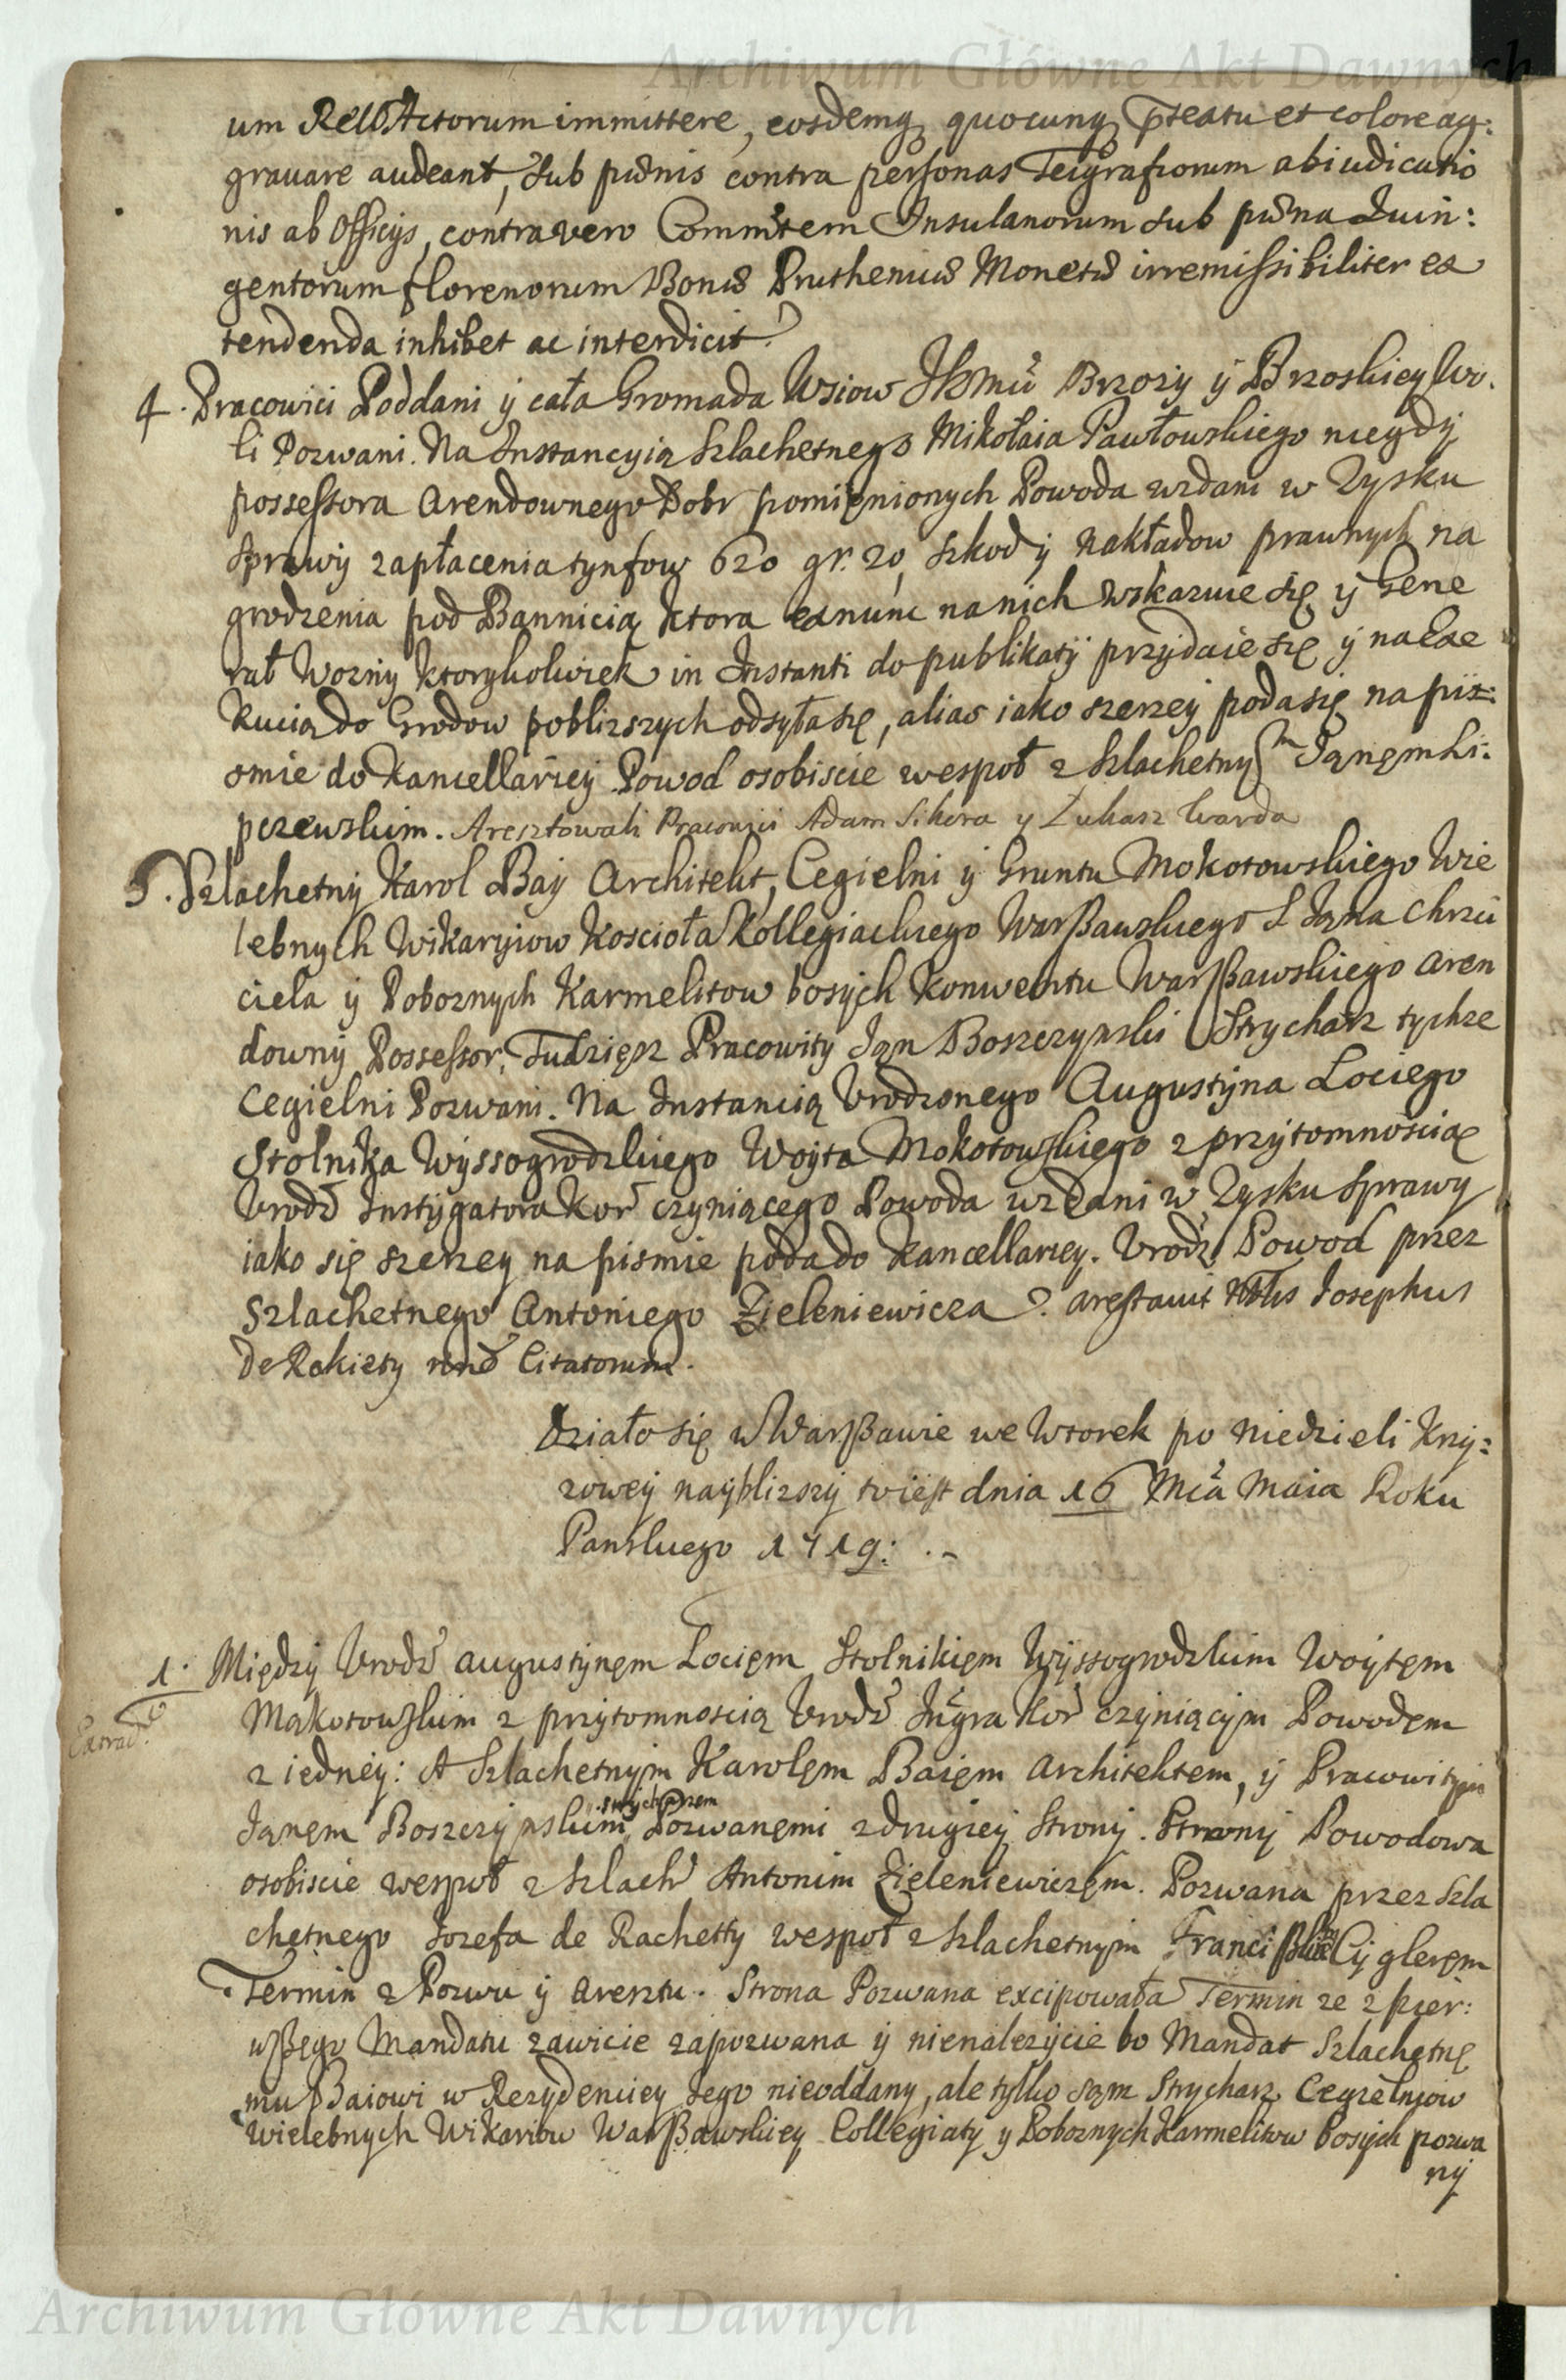 Archiwum Główne Akt Dawnych
um Rellõ Actorum immittere, eosdemq, quocunq, p̄textu et colore ag:
grauare audeant, sub pœnis contra personas Teigrafiorum abiudicatio
nis ab Officijs, contra vero Comm̃tem Insulanorum sub pœna Quin:
gentorum florenorum Bonæ Pruthenicæ Monetæ irremissibiliter ex
tendenda inhibet ac interdicit.
4. Pracowici Poddani ÿ cała Gromada Wsiow Brozy ÿ Brzoskiey Wo.
li Pozwani. Na Instancyią Szlachetnego Mikołaia Pawłowskiego niegdÿ
possessora Arendownego Dobr pomięnionych Powoda wzdani w Zysku
sprawÿ zapłacenia tynfow 620 gr. 20, szkod ÿ nakładow prawnych na
grodzenia pod Bannicią ktora exnunc na nich wskazuie się ÿ Gene
rał Woznÿ ktorykolwiek in Instanti do publikatÿ przÿdaie się ÿ na Exe
kucią do Grodow poblizszych odsyła się, alias iako szerzeÿ poda się na pis:
smie do Kancellarieÿ. Powod osobiscie wespoł z Szlachetnym Janęm Li:
pczewskim. Aresztowali Pracowici Adam Sikora y Łukasz Warda
5. Szlachetnÿ Karol Baÿ Architekt, Cegielni ÿ Gruntu Mokotowskiego Wie
lebnych Wikarÿiow Koscioła Kollegiackiego Warszawskiego S Jana Chrzci
ciela ÿ Poboznych Karmelitow bosÿch Konwentu Warszawskiego Aren
downÿ Possessor, Tudzięsz Pracowity Jąn Boszczynski Strycharz tychze
Cegielni Pozwani. Na Instancią Vrodzonego Augustÿna Lociego
Stolnika Wÿssogrodzkiego Woÿta Mokotowskiego z przÿtomnoscią
Vrodz Instÿgatora Kor czyniącego Powoda wzdani w Zysku sprawy
iako się szerzey na pismie poda do Kancellarieÿ. Vrodz Powod przez
Szlachetnego Antoniego Zieleniewicza. arestavit Nblis Josephus
de Rakiety nnē Citatorum.
Działo się w Warszawie we Wtorek po niedzieli Krzÿ:
zoweÿ naÿblizszÿ to iest dnia 16 Mcã Maia Roku
Panskiego 1719:
1. Międzÿ Vrodz Augustÿnęm Locięm Stolnikięm Wÿssogrodzkim Woÿtęm
Extrad.
Mokotowskim z przÿtomnoscią Vrodz Jn̄gra Kor czÿniącÿm Powodęm
z iedneÿ: A Szlachetnÿm Karolęm Baięm Architektem, ÿ Pracowitÿm
Strycharzem
Janęm Boszczÿnskim Pozwanęmi z drugieÿ Stronÿ. Stronÿ Powodowa
osobiscie wespoł z Szlach Antonim Zieleniewiczęm. Pozwana przez Szla
chetnego Jozefa de Rachetty wespoł z Szlachetnÿm Franciszkiem Cÿgleręm
Termin z Pozwu ÿ Aresztu. Strona Pozwana excipowała Termin ze z pier:
wszego Mandatu zawicie zapozwana ÿ nienalezÿcie bo Mandat Szlachetnę
mu Baiowi w Rezÿdencieÿ Jego nieoddanÿ, ale tÿlko sąm Strycharz Cegielniow
Wielebnych Wikariow Warszawskieÿ Collegiatÿ ÿ Poboznych Karmelitow bosÿch pozwa
nÿ
Archiwum Główne Akt Dawnych